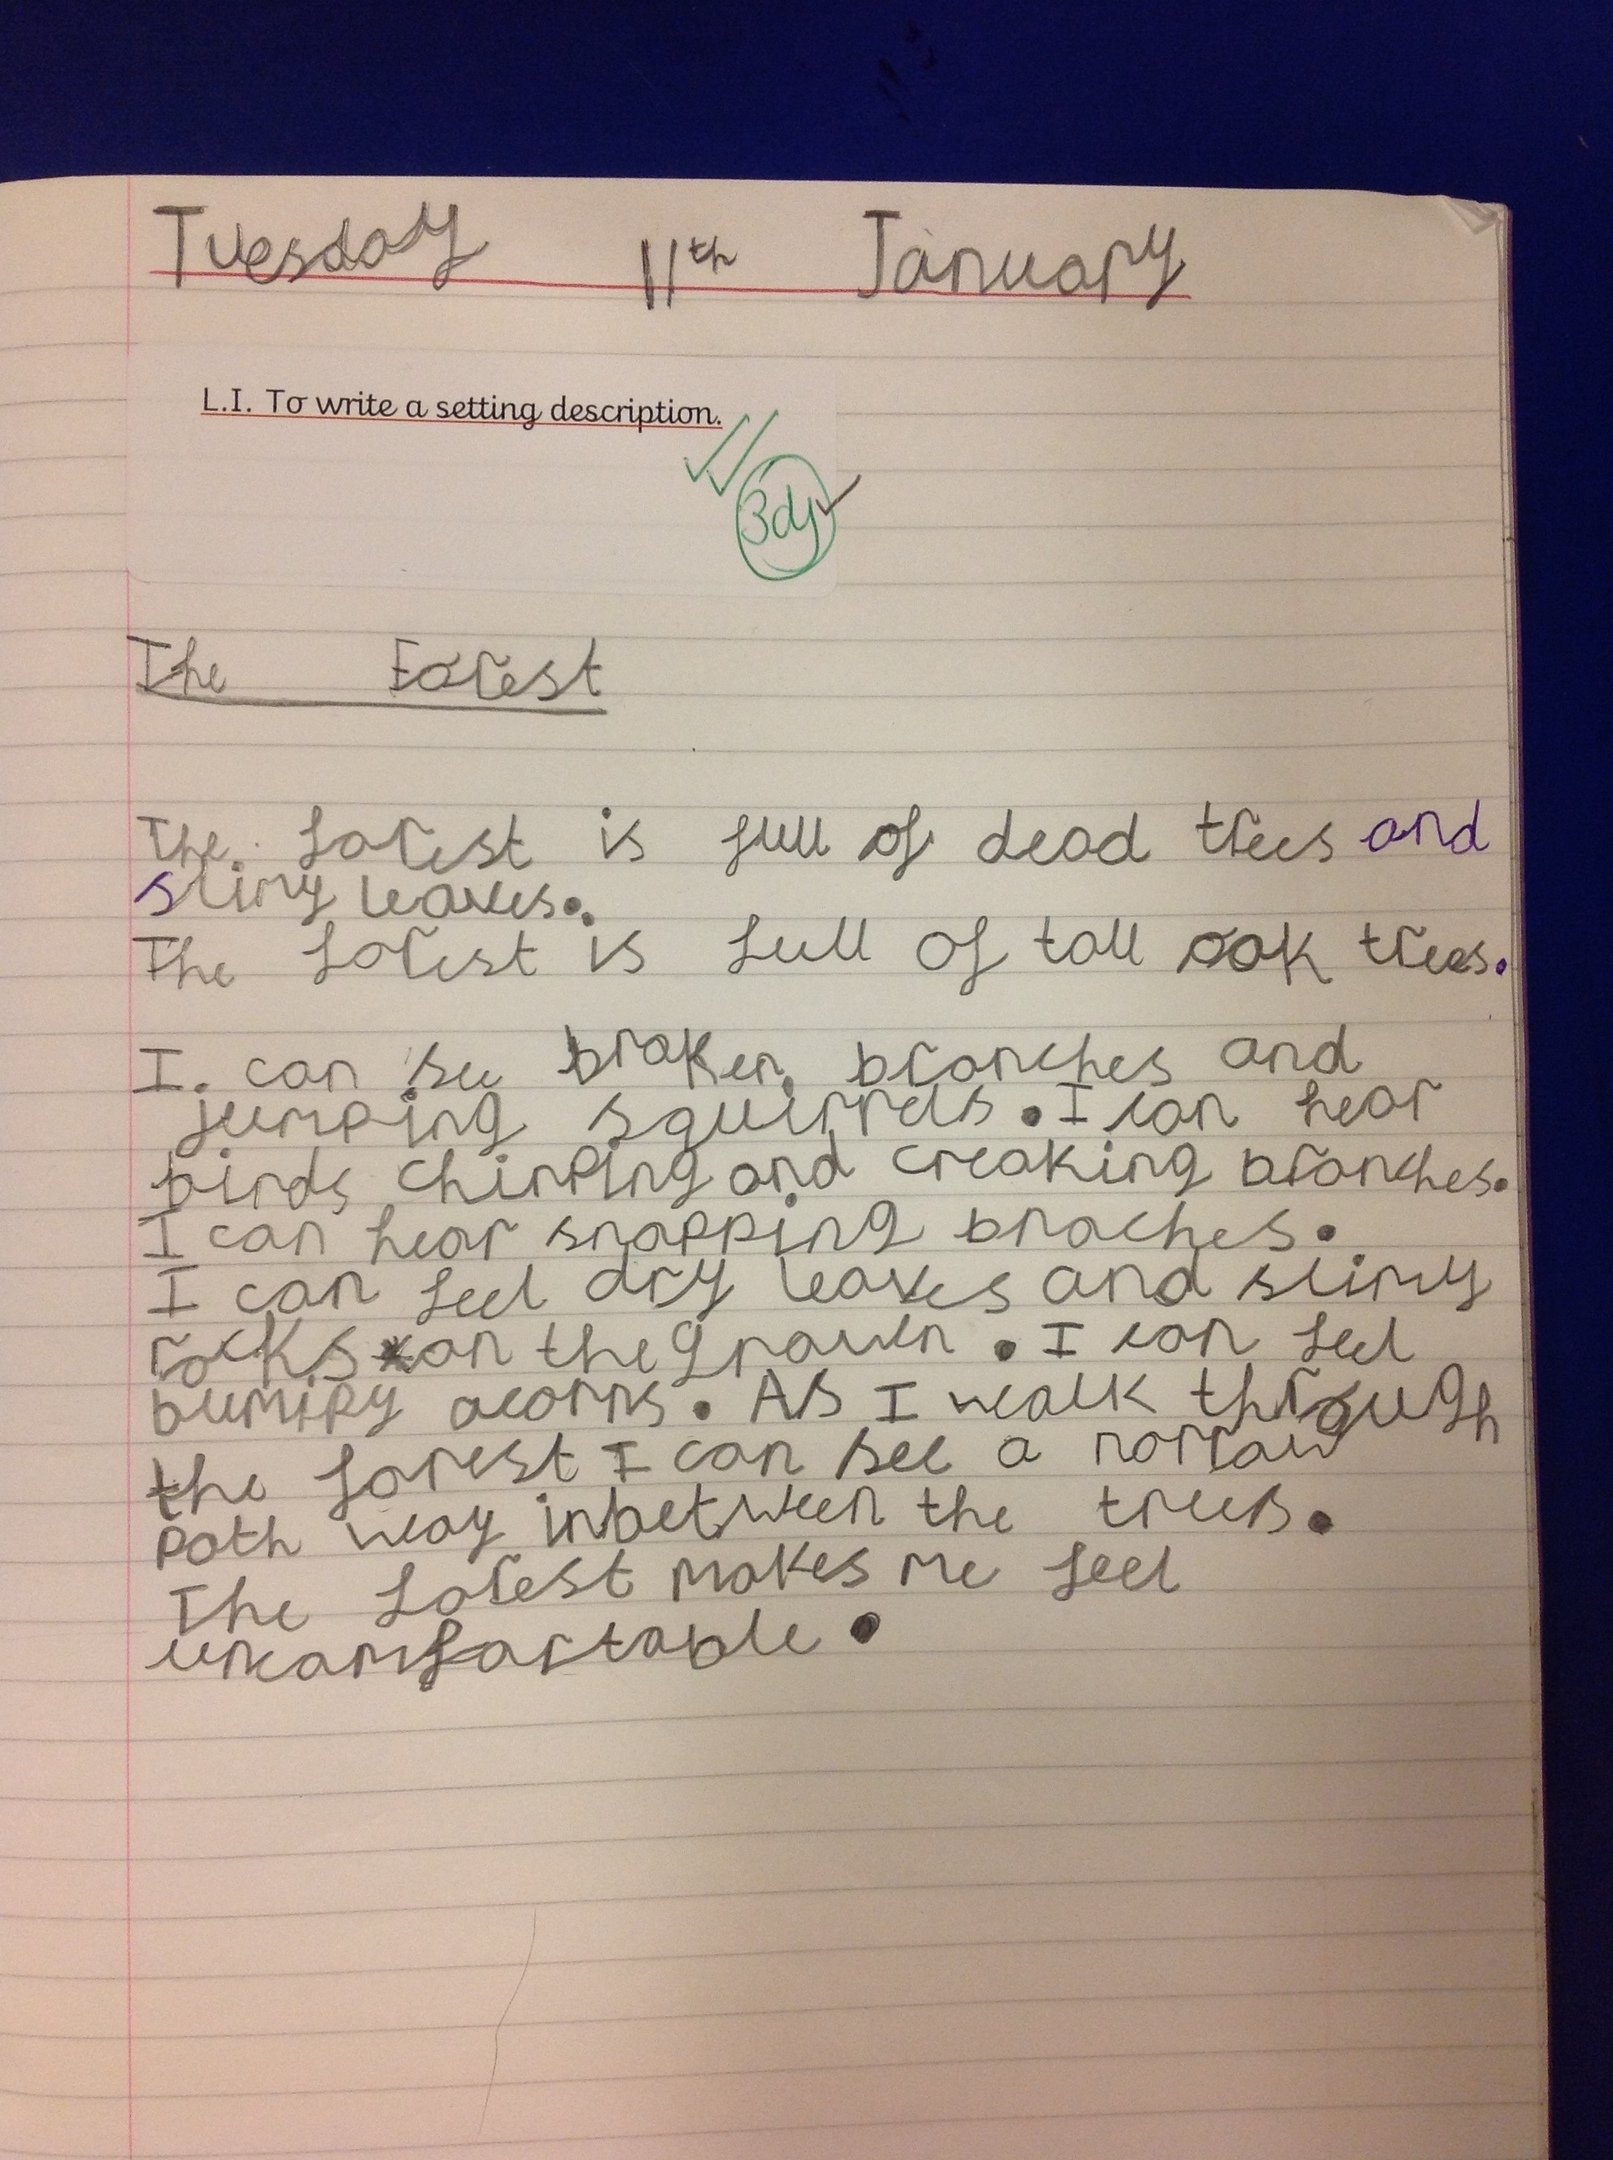 Tuesday 11th January
L.I. To write a setting description.
3dy
The Forest
The forest is full of dead trees and
slimy leaves.
The forest is full of tall oak trees.
I can see broken branches and
jumping squirrels. I can hear
birds chirping and creaking branches.
I can hear snapping braches.
I can feel dry leaves and slimy
rocks on the
. I can feel
bumpy acorns. As I walk through
the forest I can see a narrow
path way inbetween the trees.
The forest makes me feel
uncomfortable.